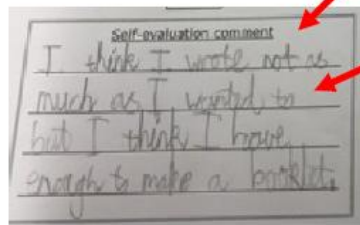 Self-evaluation comment
I think I wrote not as
much as I wanted to
but I think I have
enough to make a booklet.